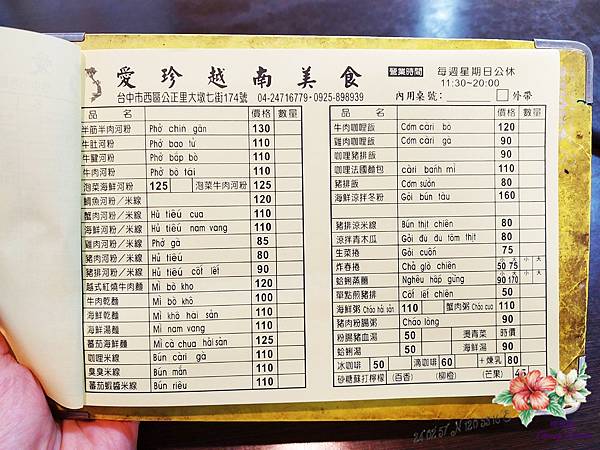 愛珍越南美食
營業時間 每週星期日公休
11:30~20:00
台中市西區公正里大墩七街174號 04-24716779·0925-898939
內用桌號： 外帶
品名 價格 數量
半筋半肉河粉 Phở chín gân 130
牛肚河粉 Phở bao tử 110
牛腱河粉 Phở bắp bò 110
牛肉河粉 Phở bò tái 110
泡菜海鮮河粉 125 泡菜牛肉河粉 125
鯛魚河粉／米線 120
蟹肉河粉／米線 Hủ tiếu cua 110
海鮮河粉／米線 Hủ tiếu nam vang 110
雞肉河粉／米線 Phở gà 85
豬肉河粉／米線 Hủ tiếu 80
豬排河粉／米線 Hủ tiếu cốt lết 90
越式紅燒牛肉麵 Mì bò kho 120
牛肉乾麵 Mì bò khô 100
海鮮乾麵 Mì khô hải sản 110
海鮮湯麵 Mì nam vang 110
蕃茄海鮮麵 Mì cà chua hải sản 125
咖哩米線 Bún cà ri gà 110
臭臭米線 Bún mắn 110
蕃茄蝦醬米線 Bún riêu 110
品名 價格 數量
牛肉咖哩飯 Cơm cà ri bò 120
雞肉咖哩飯 Cơm cà ri gà 90
咖哩豬排飯 90
咖哩法國麵包 cà ri banh mì 110
豬排飯 Cơm sườn 80
海鮮涼拌冬粉 Gỏi bún tàu 160
豬排涼米線 Bún thịt chiên 80
涼拌青木瓜 Gỏi đu đu tôm thịt 80
生菜捲 Gỏi cuốn 75
炸春捲 Chả giò chiên 小50 大75 小 大
蛤蜊蒸薑 Nghêu hấp gừng 小90 大170 小 大
單點煎豬排 Cốt lết chiên 50
海鮮粥 Cháo hải sản 110 蟹肉粥 Cháo cua 110
豬肉粉腸粥 Cháo lòng 90
粉腸豬血湯 50 燙青菜 時價
蛤蜊湯 50 海鮮湯 90
冰咖啡 50 滴咖啡 60 ＋煉乳 80
砂糖蘇打檸檬 （百香） （柳橙） （芒果） 45